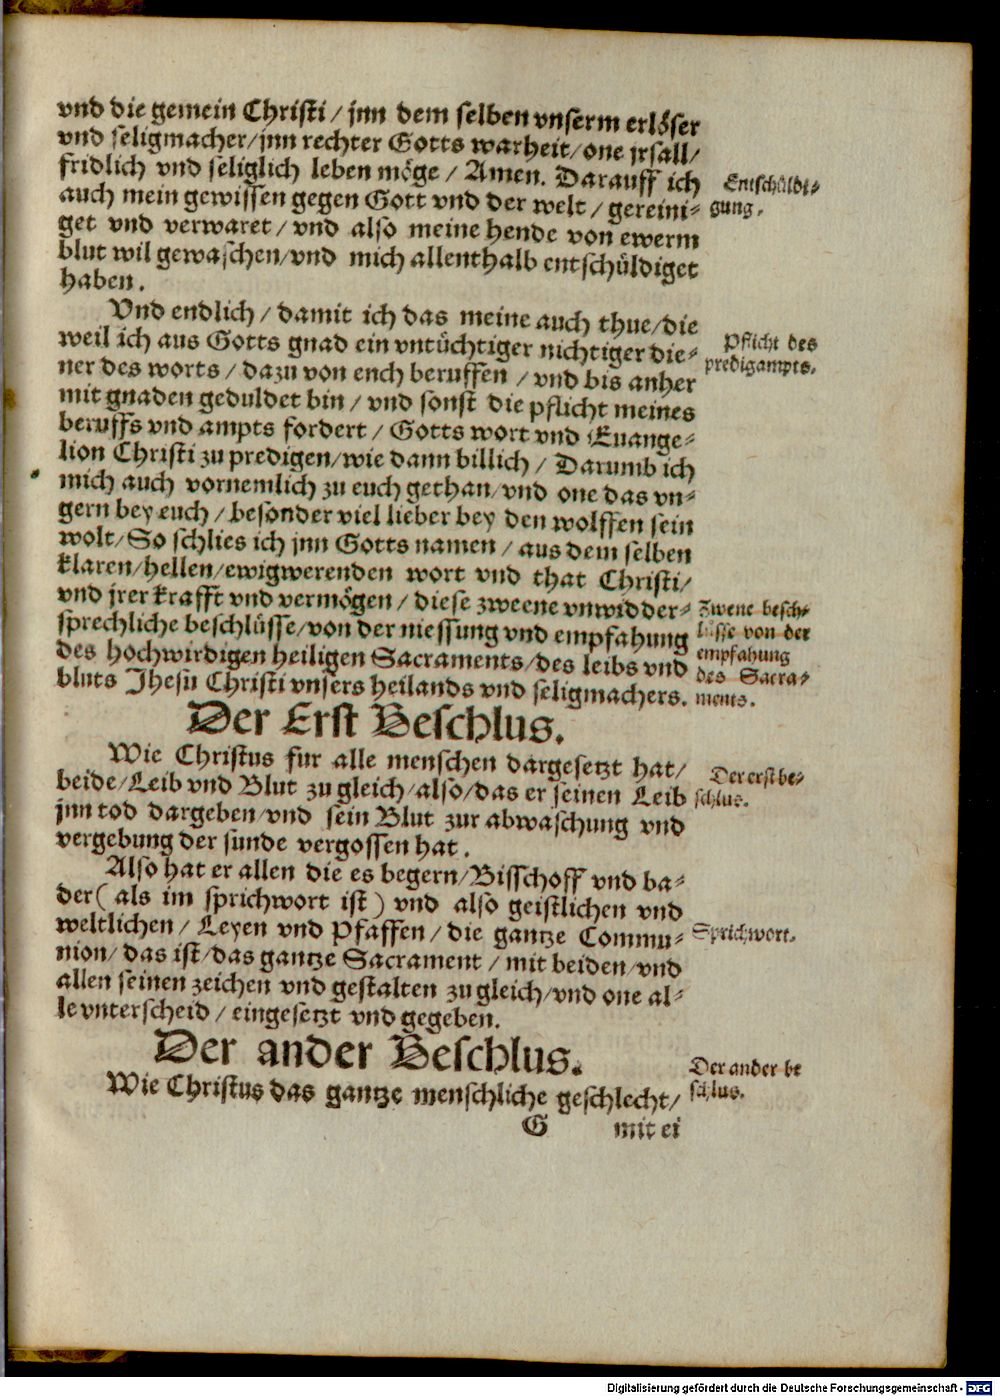 vnd die gemein Christi / jnn dem selben vnserm erlöser
vnd seligmacher/jnn rechter Gotts warheit/one jrsall/
fridlich vnd seliglich leben möge / Amen. Darauff ich
Entschüldi⸗
auch mein gewissen gegen Gott vnd der welt / gereini⸗
gung.
get vnd verwaret / vnd also meine hende von ewerm
blut wil gewaschen/vnd mich allenthalb entschüldiget
haben.
Vnd endlich / damit ich das meine auch thue/die
weil ich aus Gotts gnad ein vntüchtiger nichtiger die⸗
Pflicht des
ner des worts / dazu von euch beruffen / vnd bis anher
predigampts.
mit gnaden geduldet bin / vnd sonst die pflicht meines
beruffs vnd ampts fordert / Gotts wort vnd Euange⸗
lion Christi zu predigen/wie dann billich / Darumb ich
mich auch vornemlich zu euch gethan/vnd one das vn⸗
gern bey euch / besonder viel lieber bey den wolffen sein
wolt/So schlies ich jnn Gotts namen / aus dem selben
klaren/hellen/ewigwerenden wort vnd that Christi/
vnd jrer krafft vnd vermögen / diese zweene vnwidder⸗
Zwene besch⸗
sprechliche beschlüsse/von der niessung vnd empfahung
lüsse von der
des hochwirdigen heiligen Sacraments/des leibs vnd
empfahung
des Sacra⸗
bluts Jhesu Christi vnsers heilands vnd seligmachers.
ments.
Der Erst Beschlus.
Wie Christus fur alle menschen dargesetzt hat/
Der erst be⸗
beide/Leib vnd Blut zu gleich/also/das er seinen Leib
schlus.
jnn tod dargeben/vnd sein Blut zur abwaschung vnd
vergebung der sunde vergossen hat.
Also hat er allen die es begern/Bisschoff vnd ba⸗
der( als im sprichwort ist ) vnd also geistlichen vnd
weltlichen / Leyen vnd Pfaffen / die gantze Commu⸗
Sprichwort.
nion/ das ist/das gantze Sacrament / mit beiden/vnd
allen seinen zeichen vnd gestalten zu gleich/vnd one al⸗
le vnterscheid / eingesetzt vnd gegeben.
Der ander Beschlus.
Der ander be
Wie Christus das gantze menschliche geschlecht/
schlus.
G mit ei
Digitalisierung gefördert durch die Deutsche Forschungsgemeinschaft - DFG